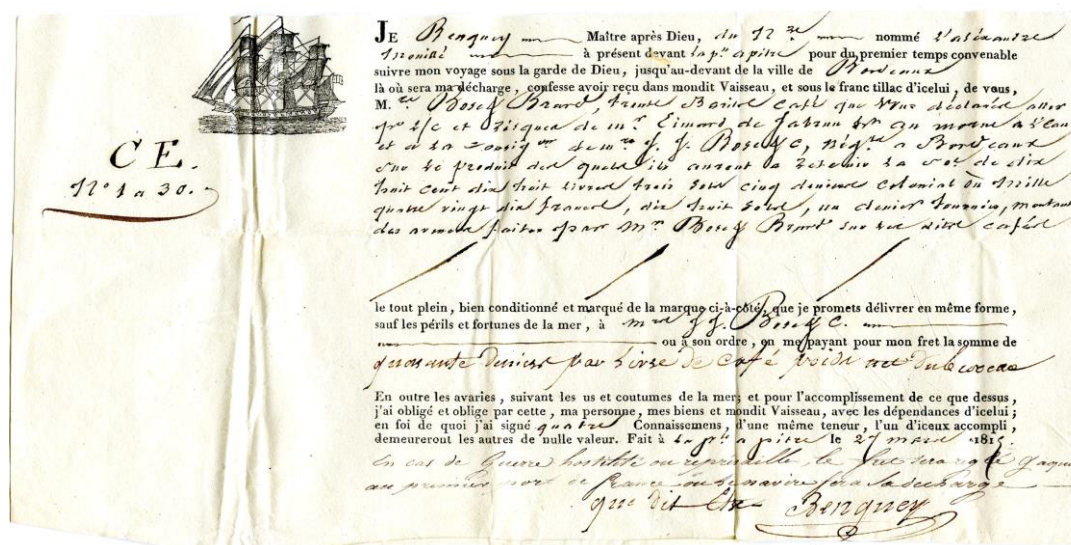 JE Benquey Maître après Dieu, du N.re nommé L'alexandre
à présent devant la p.te a pitre pour du premier temps convenable
suivre mon voyage sous la garde de Dieu, jusqu'au-devant de la ville de Bordeaux
là où sera ma décharge, confesse avoir reçu dans mondit Vaisseau, et sous le franc tillac d'icelui, de vous,
M.rs Bosc & Brard, trente Barils Café que vous déclarés aller
p.r c/e et Risques de m.r Eimard de
et a la Consig.on de m.rs J. J. Bosc & C, Nég.ts a Bordeaux
sur le produit des quels ils auront a Retenir la so.e de dix
huit cent dix huit livres trois sols cinq deniers colonial ou Mille
quatre vingt dix francs, dix huit sols, un denier tournois, montant
des avances faites par M.rs Bosc & Brard sur les dits cafés
CE.
N.o 1 a 30.
le tout plein, bien conditionné et marqué de la marque ci-à-côté, que je promets délivrer en même forme,
sauf les périls et fortunes de la mer, à m.rs J. J. Bosc & C.
ou à son ordre, en me payant pour mon fret la somme de
quarante deniers par livre de café poids net
En outre les avaries, suivant les us et coutumes de la mer; et pour l'accomplissement de ce que dessus,
j'ai obligé et oblige par cette, ma personne, mes biens et mondit Vaisseau, avec les dépendances d'icelui;
en foi de quoi j'ai signé quatre Connaissemens, d'une même teneur, l'un d'iceux accompli,
demeureront les autres de nulle valeur. Fait à la p.te a pitre le 27 mars 1815.
En cas de Guerre hostilité ou represaille, le fret sera
au premier port de france ou le navire fera sa decharge
que dit Est Benquey